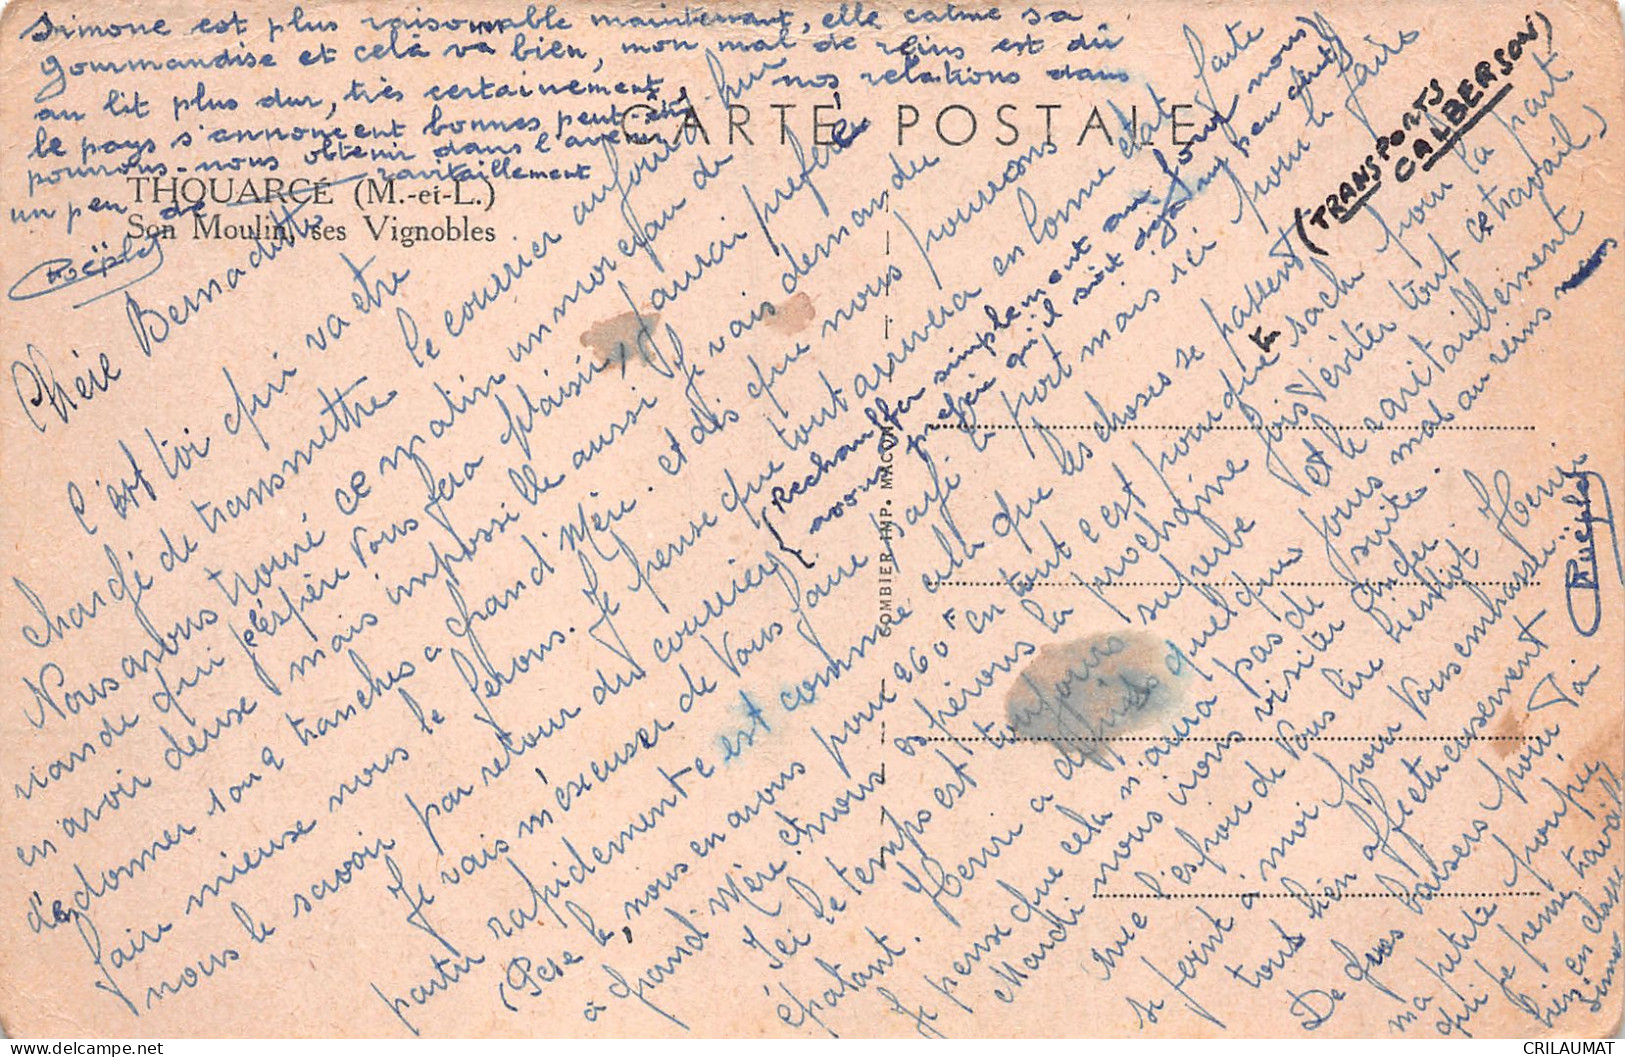 Simone est plus raisonnable maintenant, elle calme sa
gourmandise et celà va bien, mon mal de reins est dû
au lit plus dur, très certainement, nos relations dans
le pays s'annoncent bonnes peut-être
pourrons-nous obtenir dans l'avenir
un peu de ravitaillement
CARTE POSTALE
THOUARCÉ (M.-et-L.)
Son Moulin, ses Vignobles
COMBIER IMP. MACON
Chère Bernadette
C'est toi qui va être
chargé de transmettre le courrier aujourd'hui
Nous avons trouvé ce matin un morceau de
viande qui j'éspère vous fera plaisir, j'aurai préféré
en avoir deux mais impossible aussi je vais demander
d'en donner 1 ou 2 tranches à grand'Mère. et dès que nous pourrons
faire mieux nous le ferons. Je pense que tout arrivera en bonne état faite
nous le savoir par retour du courrier
(Rechauffer simplement au four nous
avons préféré qu'il soit déjà un peu cuit)
Je vais m'excuser de vous faire payer le port mais ici pour le faire
partir rapidement c'est comme cela que les choses se passent
(TRANSPORTS
CALBERSON)
(Pese le, nous en avons pour 260F en tout c'est pour que tu sache pour la part
à grand'Mère. et nous espérons la prochaine fois éviter tout ce travail)
Ici le temps est toujours superbe et le ravitaillement
épatant. Henri a depuis quelques jours mal au reins
Je pense que cela n'aura pas de suite.
Mardi nous irons visiter Angers.
Avec l'espoir de vous lire bientôt. Henri
se joint à moi pour vous embrasser
tous bien affectueusement
De gros baisers pour Toi
ma petite poupée
qui je pense travaille
bien en classe
Simone